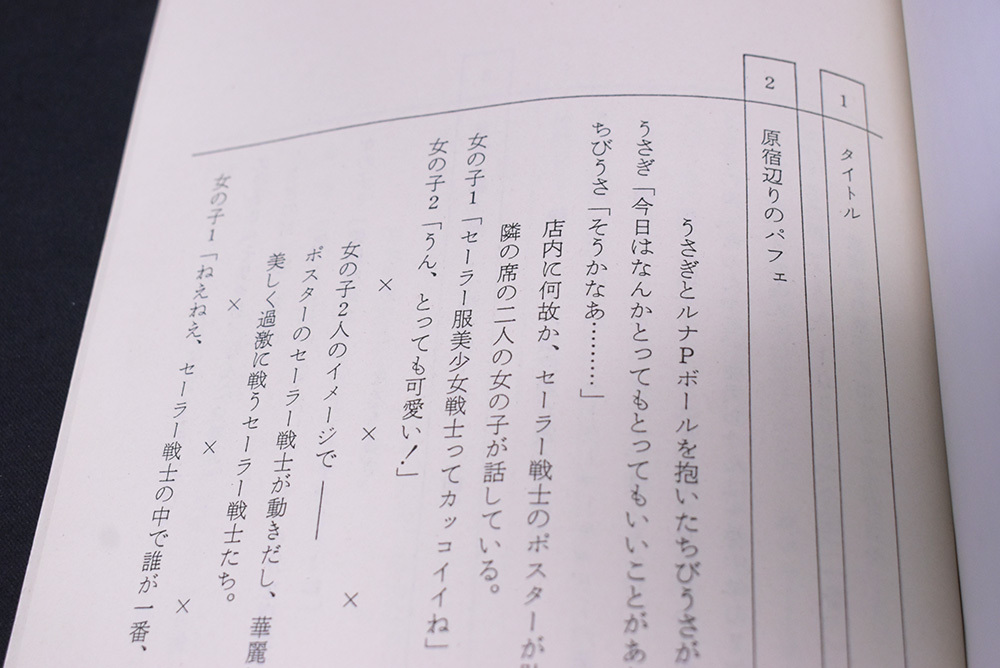 1
タイトル
2
原宿辺りのパフェ
うさぎとルナPボールを抱いたちびうさが
うさぎ「今日はなんかとってもとってもいいことがあ
ちびうさ「そうかなあ…………」
店内に何故か、セーラー戦士のポスターが
隣の席の二人の女の子が話している。
女の子1「セーラー服美少女戦士ってカッコイイね」
女の子2「うん、とっても可愛い!」
× × ×
女の子2人のイメージで——
ポスターのセーラー戦士が動きだし、華麗
美しく過激に戦うセーラー戦士たち。
× × ×
女の子1「ねえねえ、セーラー戦士の中で誰が一番、